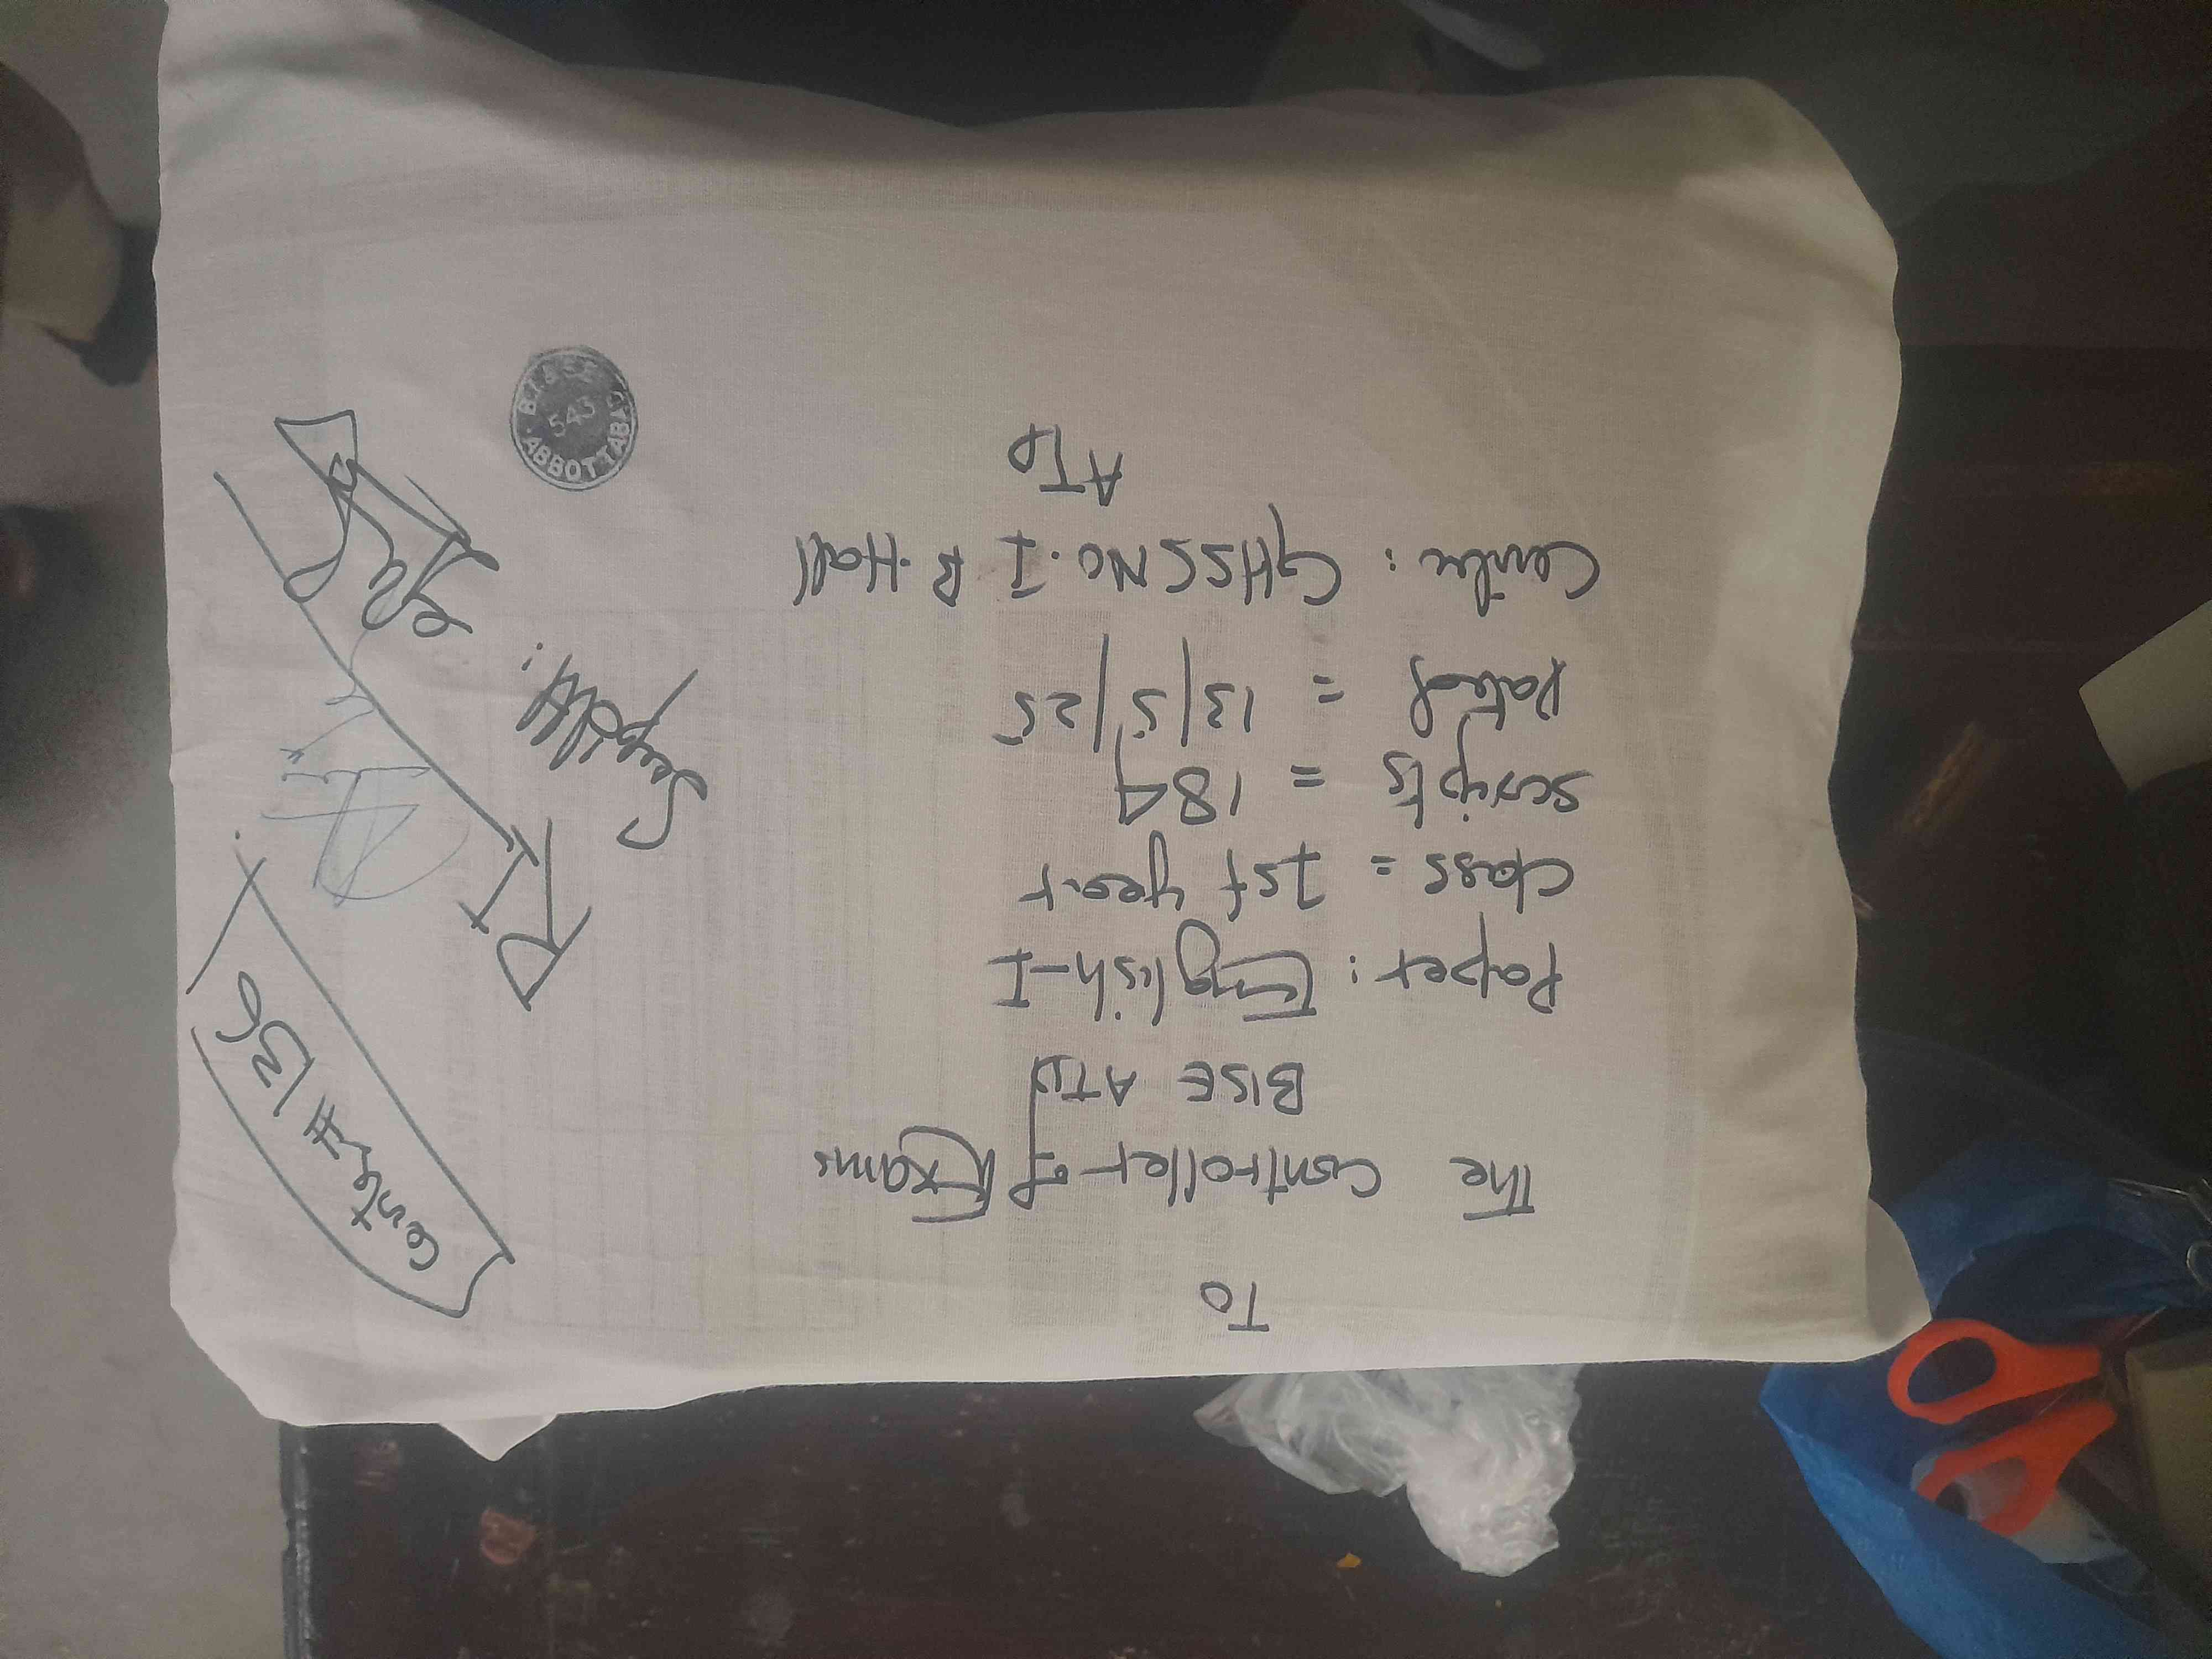 To
The controller of Exams
BISE ATD
Paper: English-I
class = 1st year
scripts = 184
Dated = 13/5/25
Centre: GHSS No.I B.Hall
ATD
Center # 136
Supdtt:
B.I.S.E
543
ABBOTTABAD